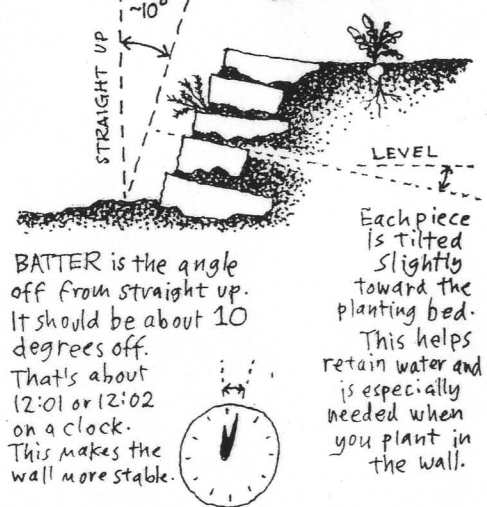 ~10°
STRAIGHT UP
LEVEL
BATTER is the angle
off from straight up.
It should be about 10
degrees off.
That's about
12:01 or 12:02
on a clock.
This makes the
wall more stable.
Each piece
is tilted
slightly
toward the
planting bed.
This helps
retain water and
is especially
needed when
you plant in
the wall.